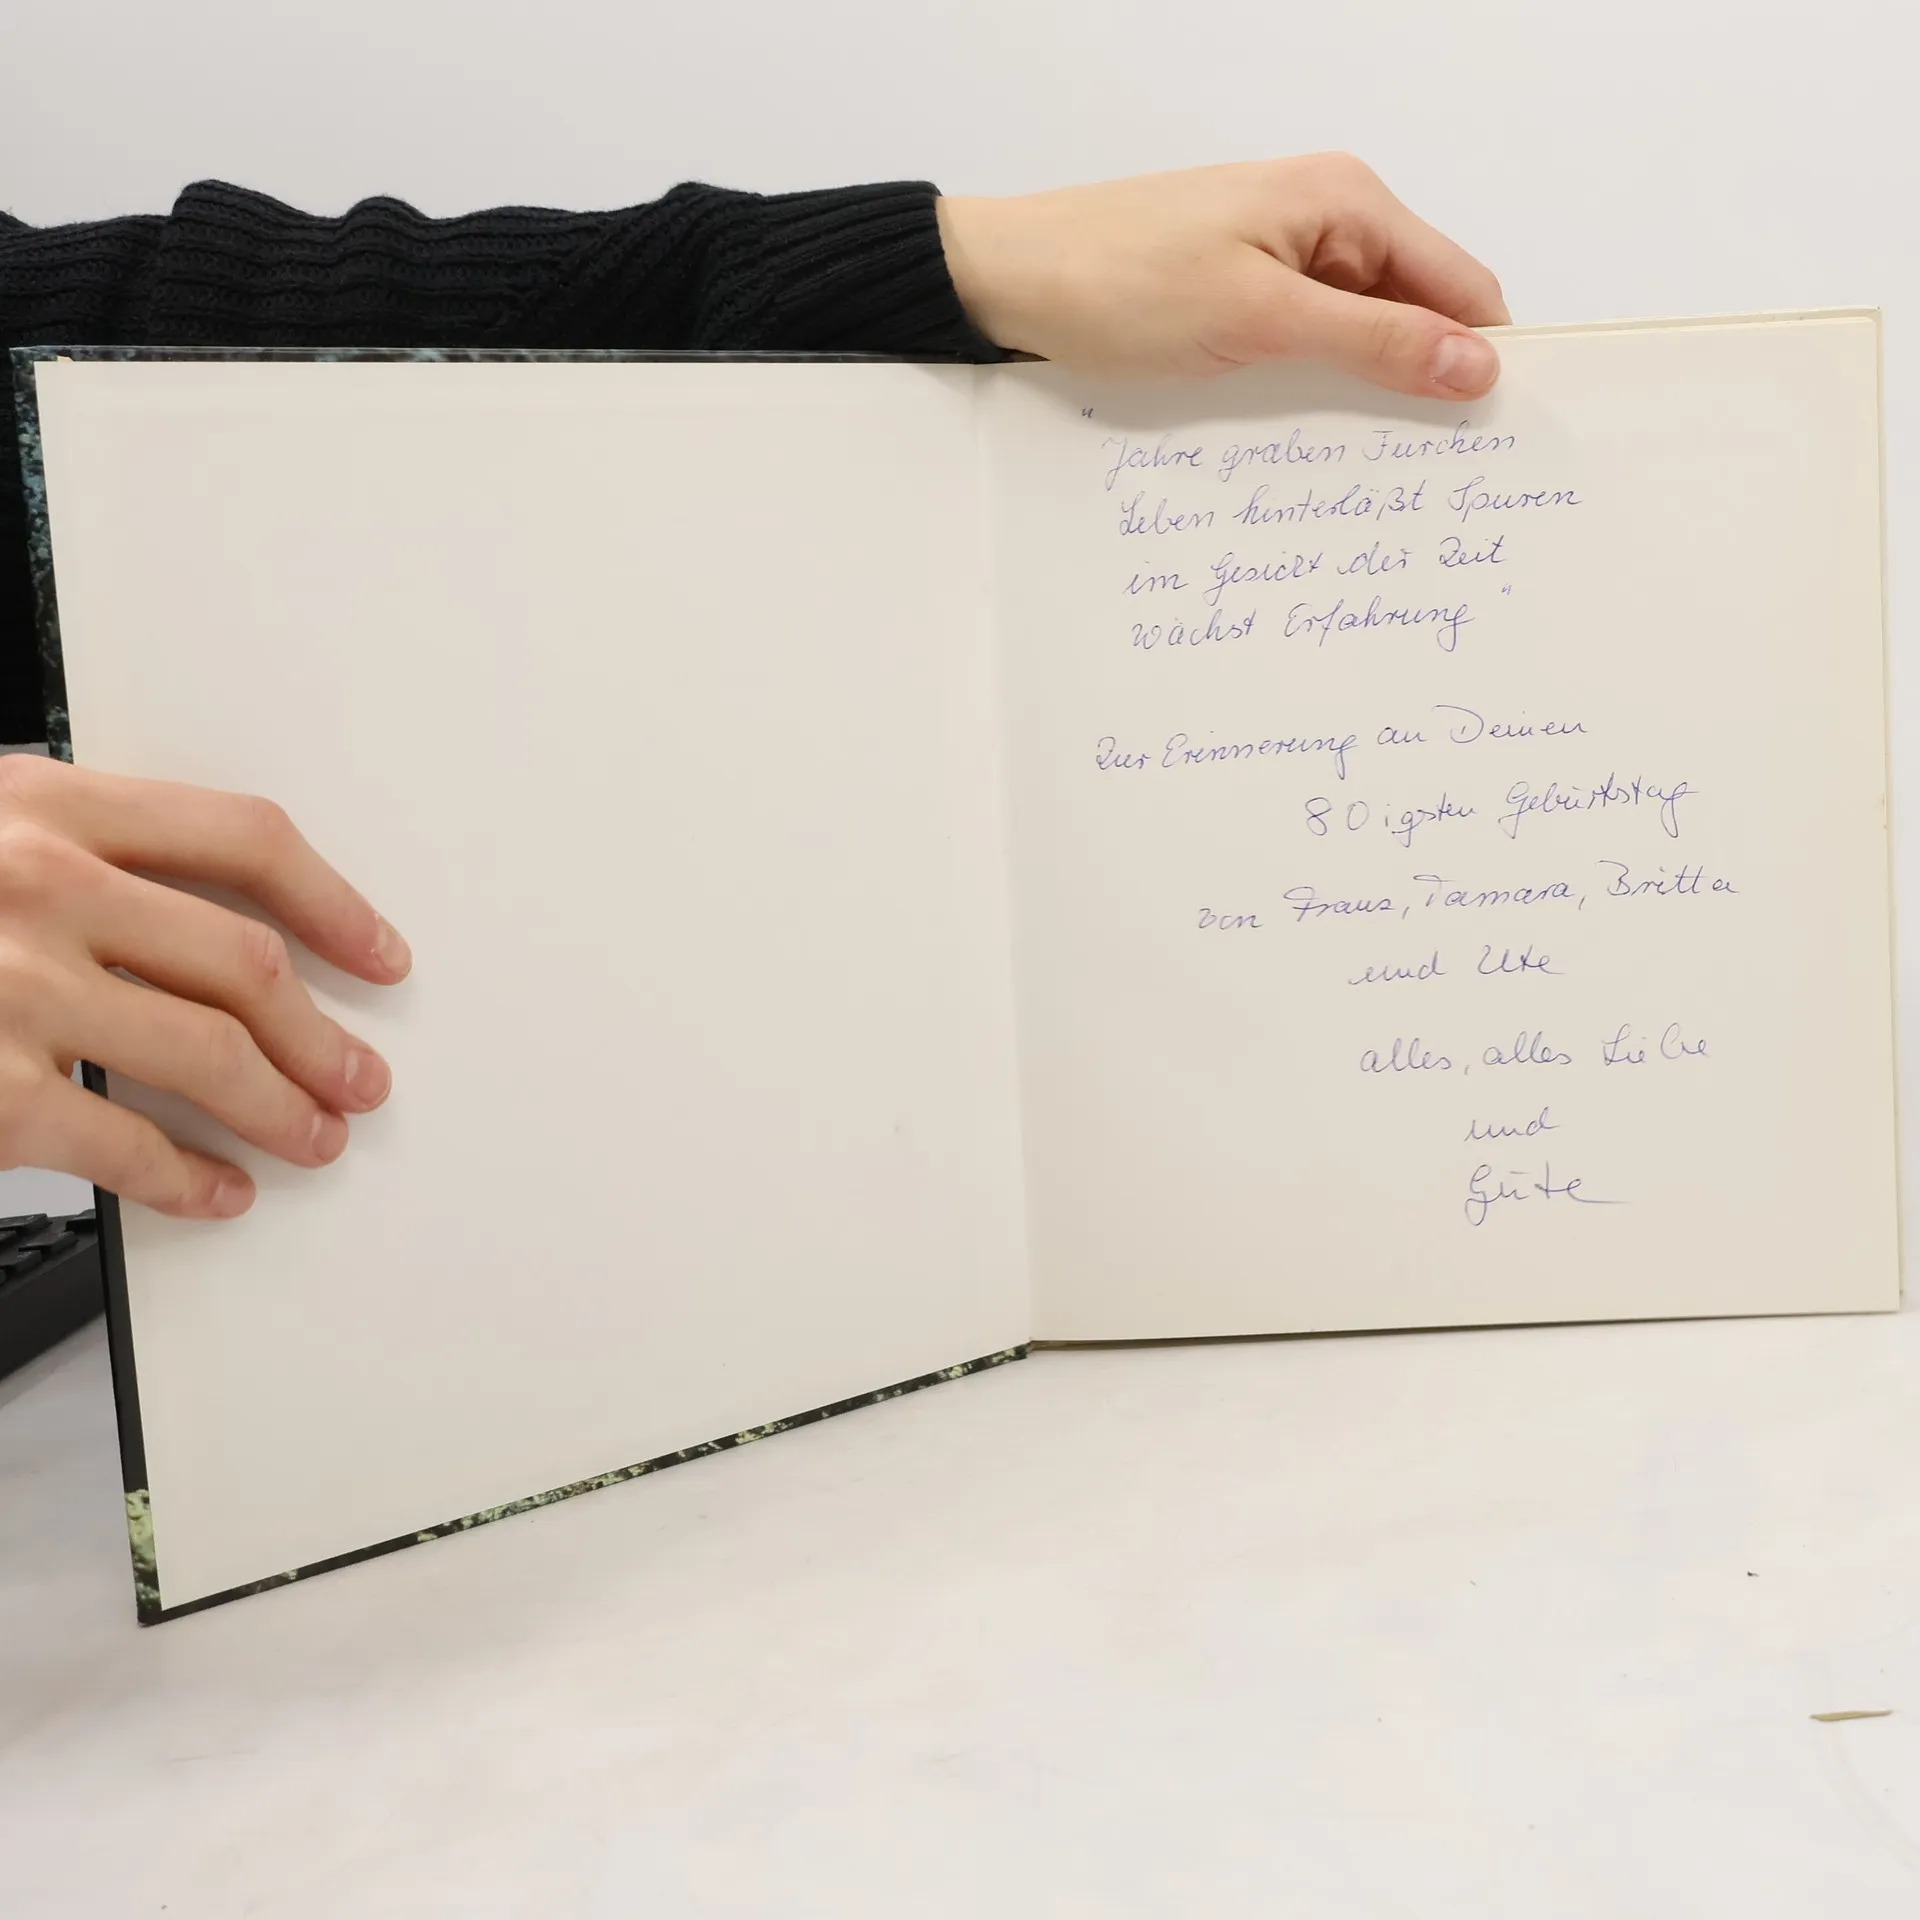 "
Jahre graben Furchen
Leben hinterläßt Spuren
im Gesicht der Zeit
wächst Erfahrung "
Zur Erinnerung an Deinen
80igsten Geburtstag
von Franz, Tamara, Britta
und Ute
alles, alles Liebe
und
Gute